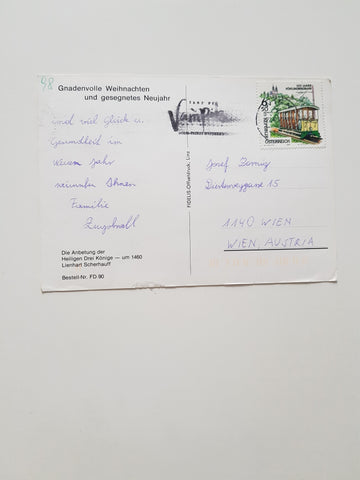 98
Gnadenvolle Weihnachten
und gesegnetes Neujahr
und viel Glück u.
Gesundheit im
neuen Jahr
wünschen Ihnen
Familie
Die Anbetung der
Heiligen Drei Könige — um 1460
Lienhart Scherhauff
Bestell-Nr. FD 90
FIDELIS-Offsetdruck, Linz
TANZ DER
Vampire
ÖSTERREICH
Josef
1140 WIEN
WIEN, AUSTRIA